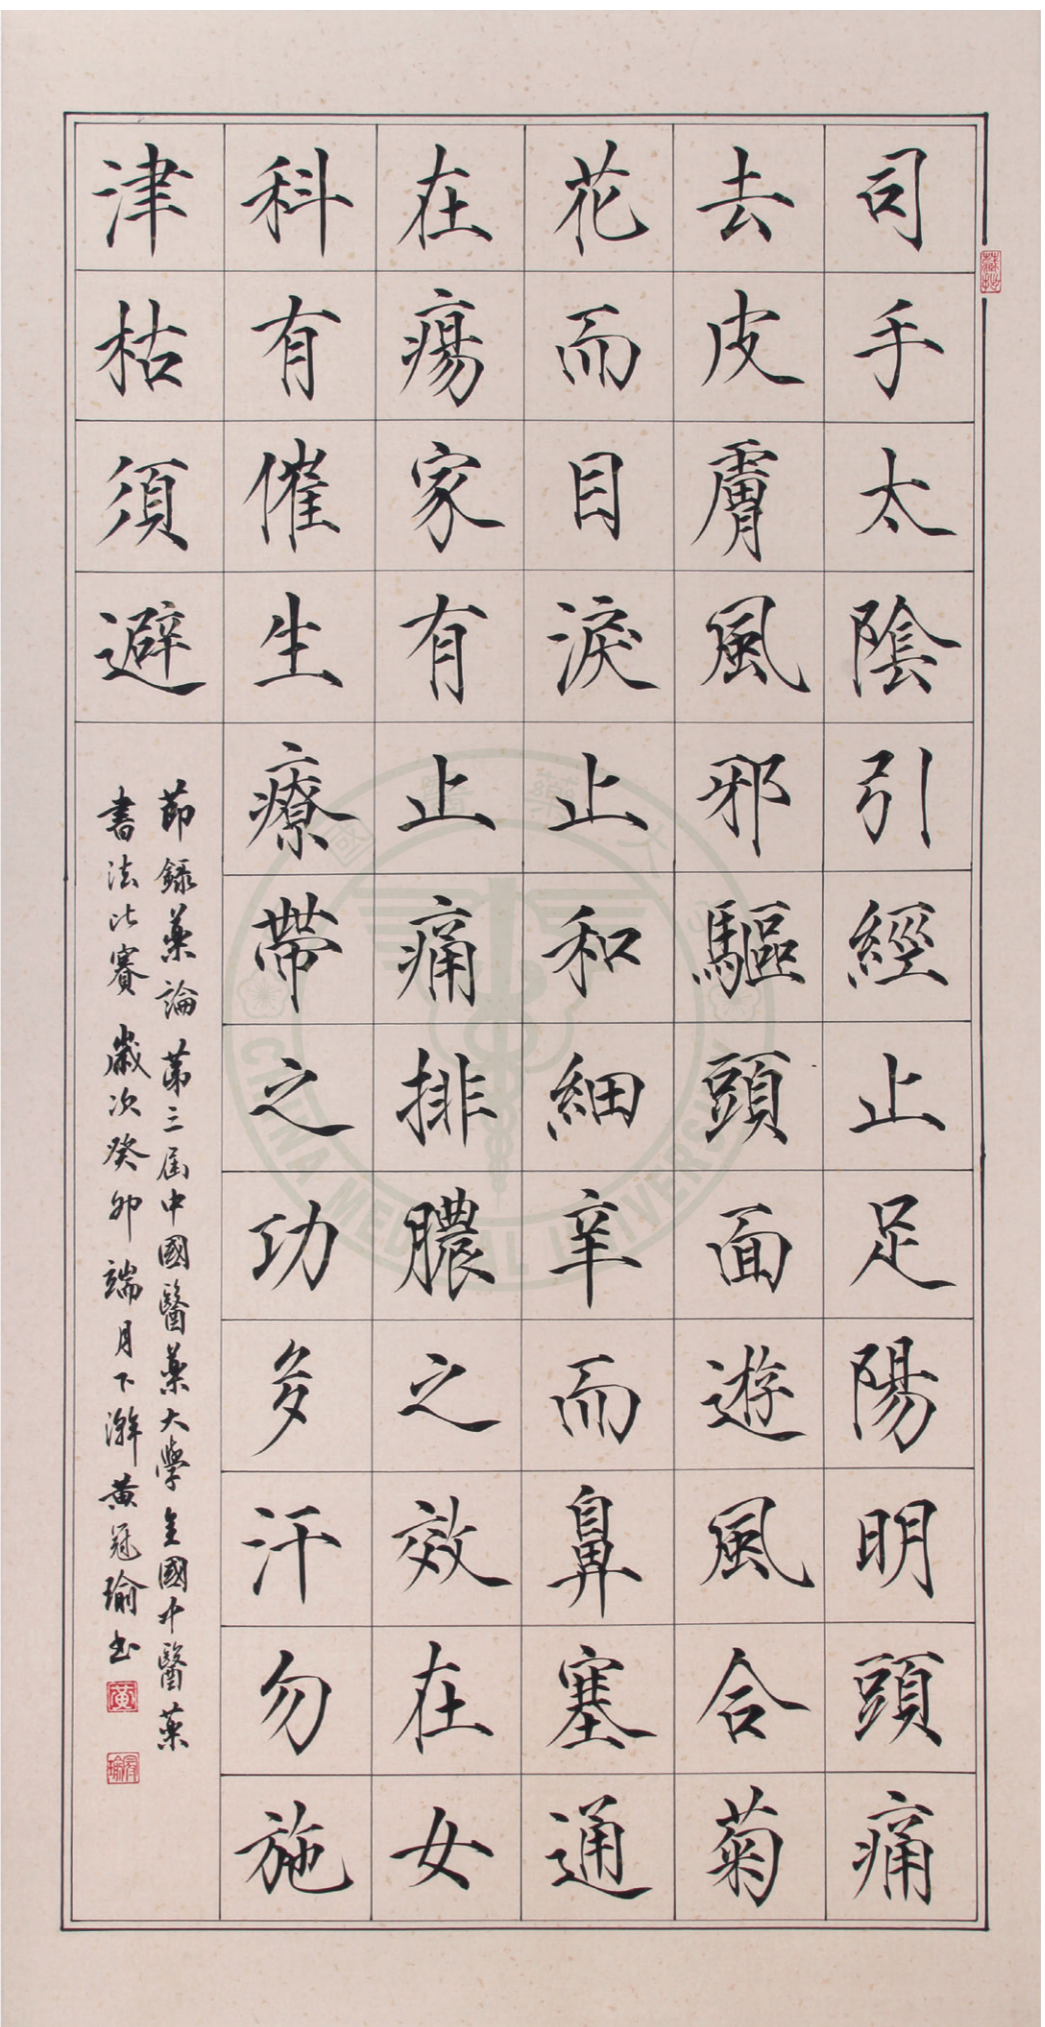 司手太陰引經止足陽明頭痛
去皮膚風邪驅頭面遊風合菊
花而目淚止和細辛而鼻塞通
在瘍家有止痛排膿之效在女
科有催生療帶之功多汗勿施
津枯須避
節錄藥論 第三屆中國醫藥大學全國中醫藥
書法比賽 歲次癸卯端月下澣黃冠瑜書
CHINA MEDICAL UNIVERSITY